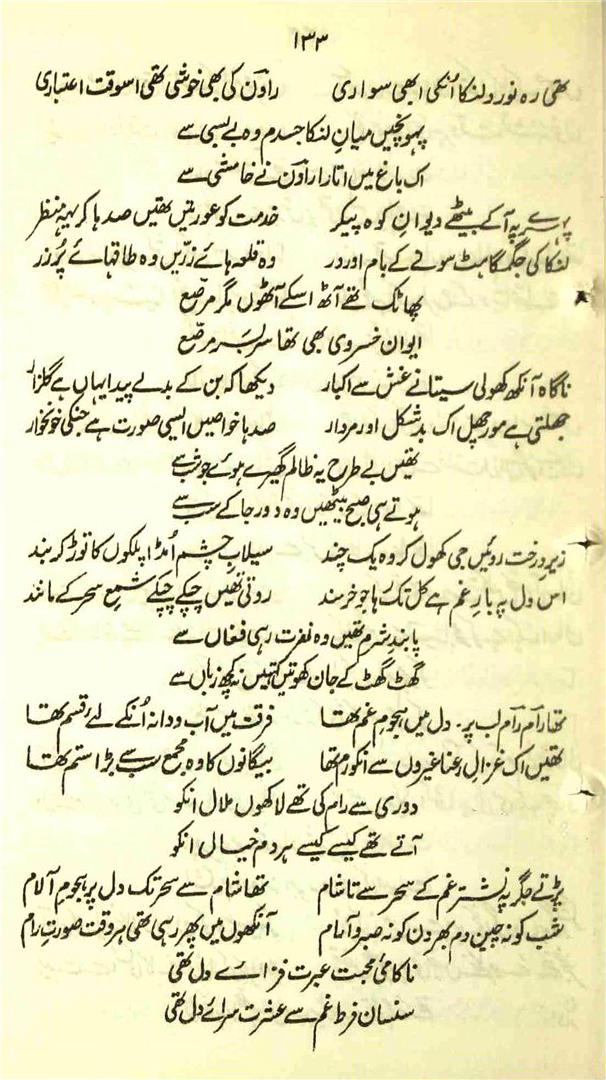 ۱۳۳
تھی رہ نورد لنکا اُنکی ابھی سواری راون کی بھی خوشی تھی اسوقت اعتباری
پہونچیں میانِ لنکا جسدم وہ بے بسی سے
اک باغ میں اتارا راون نے خامشی سے
پہرے پہ آکے بیٹھے دیوانِ کوہ پیکر خدمت کو عورتیں تھیں صدہا کریہہ منظر
لنکا کی جگمگاہٹ سونے کے بام اور در وہ قلعہ ہائے زرّیں وہ طاقہائے پُر زر
پھاٹک تھے آٹھ اسکے آٹھوں مگر مرصّع
ایوان خسروی بھی تھا سربسر مرصّع
ناگاہ آنکھ کھولی سیتا نے غش سے اکبار دیکھا کہ بن کے بدلے پیدا یہاں ہے گلزار
جھلتی ہے مورچھل اک بدشکل اور مردار صدہا خواصیں ایسی صورت ہے جنکی خونخوار
تھیں بے طرح یہ ظالم گھیرے ہوئے جو شب سے
ہوتے ہی صبح بیٹھیں وہ دور جاکے سب سے
زیرِ درخت روئیں جی کھول کر وہ یک چند سیلابِ چشم اُمڈا پلکوں کا توڑ کر بند
اس دل پہ بارِ غم ہے کل تک رہا جو خرسند روتی تھیں چپکے چپکے شمعِ سحر کے مانند
پابندِ شرم تھیں وہ نفرت رہی فغاں سے
گھٹ گھٹ کے جان کھوتیں کہتیں نہ کچھ زباں سے
تھا رام رام لب پر۔ دل میں ہجومِ غم تھا فرقت میں آب و دانہ اُنکے لئے قسم تھا
تھیں اک غزالِ رعنا غیروں سے انکو رم تھا بیگانوں کا وہ مجمع سب سے بڑا ستم تھا
دوری سے رام کی تھے لاکھوں ملال انکو
آتے تھے کیسے کیسے ہر دم خیال انکو
پڑتے جگر پہ نشتر غم کے سحر سے تا شام تھا شام سے سحر تک دل پر ہجومِ آلام
شب کو نہ چین دم بھر دن کو نہ صبر و آرام آنکھوں میں پھر رہی تھی ہر وقت صورتِ رام
ناکامیٔ محبت عبرت فزائے دل تھی
سنسان فرطِ غم سے عشرت سرائے دل تھی